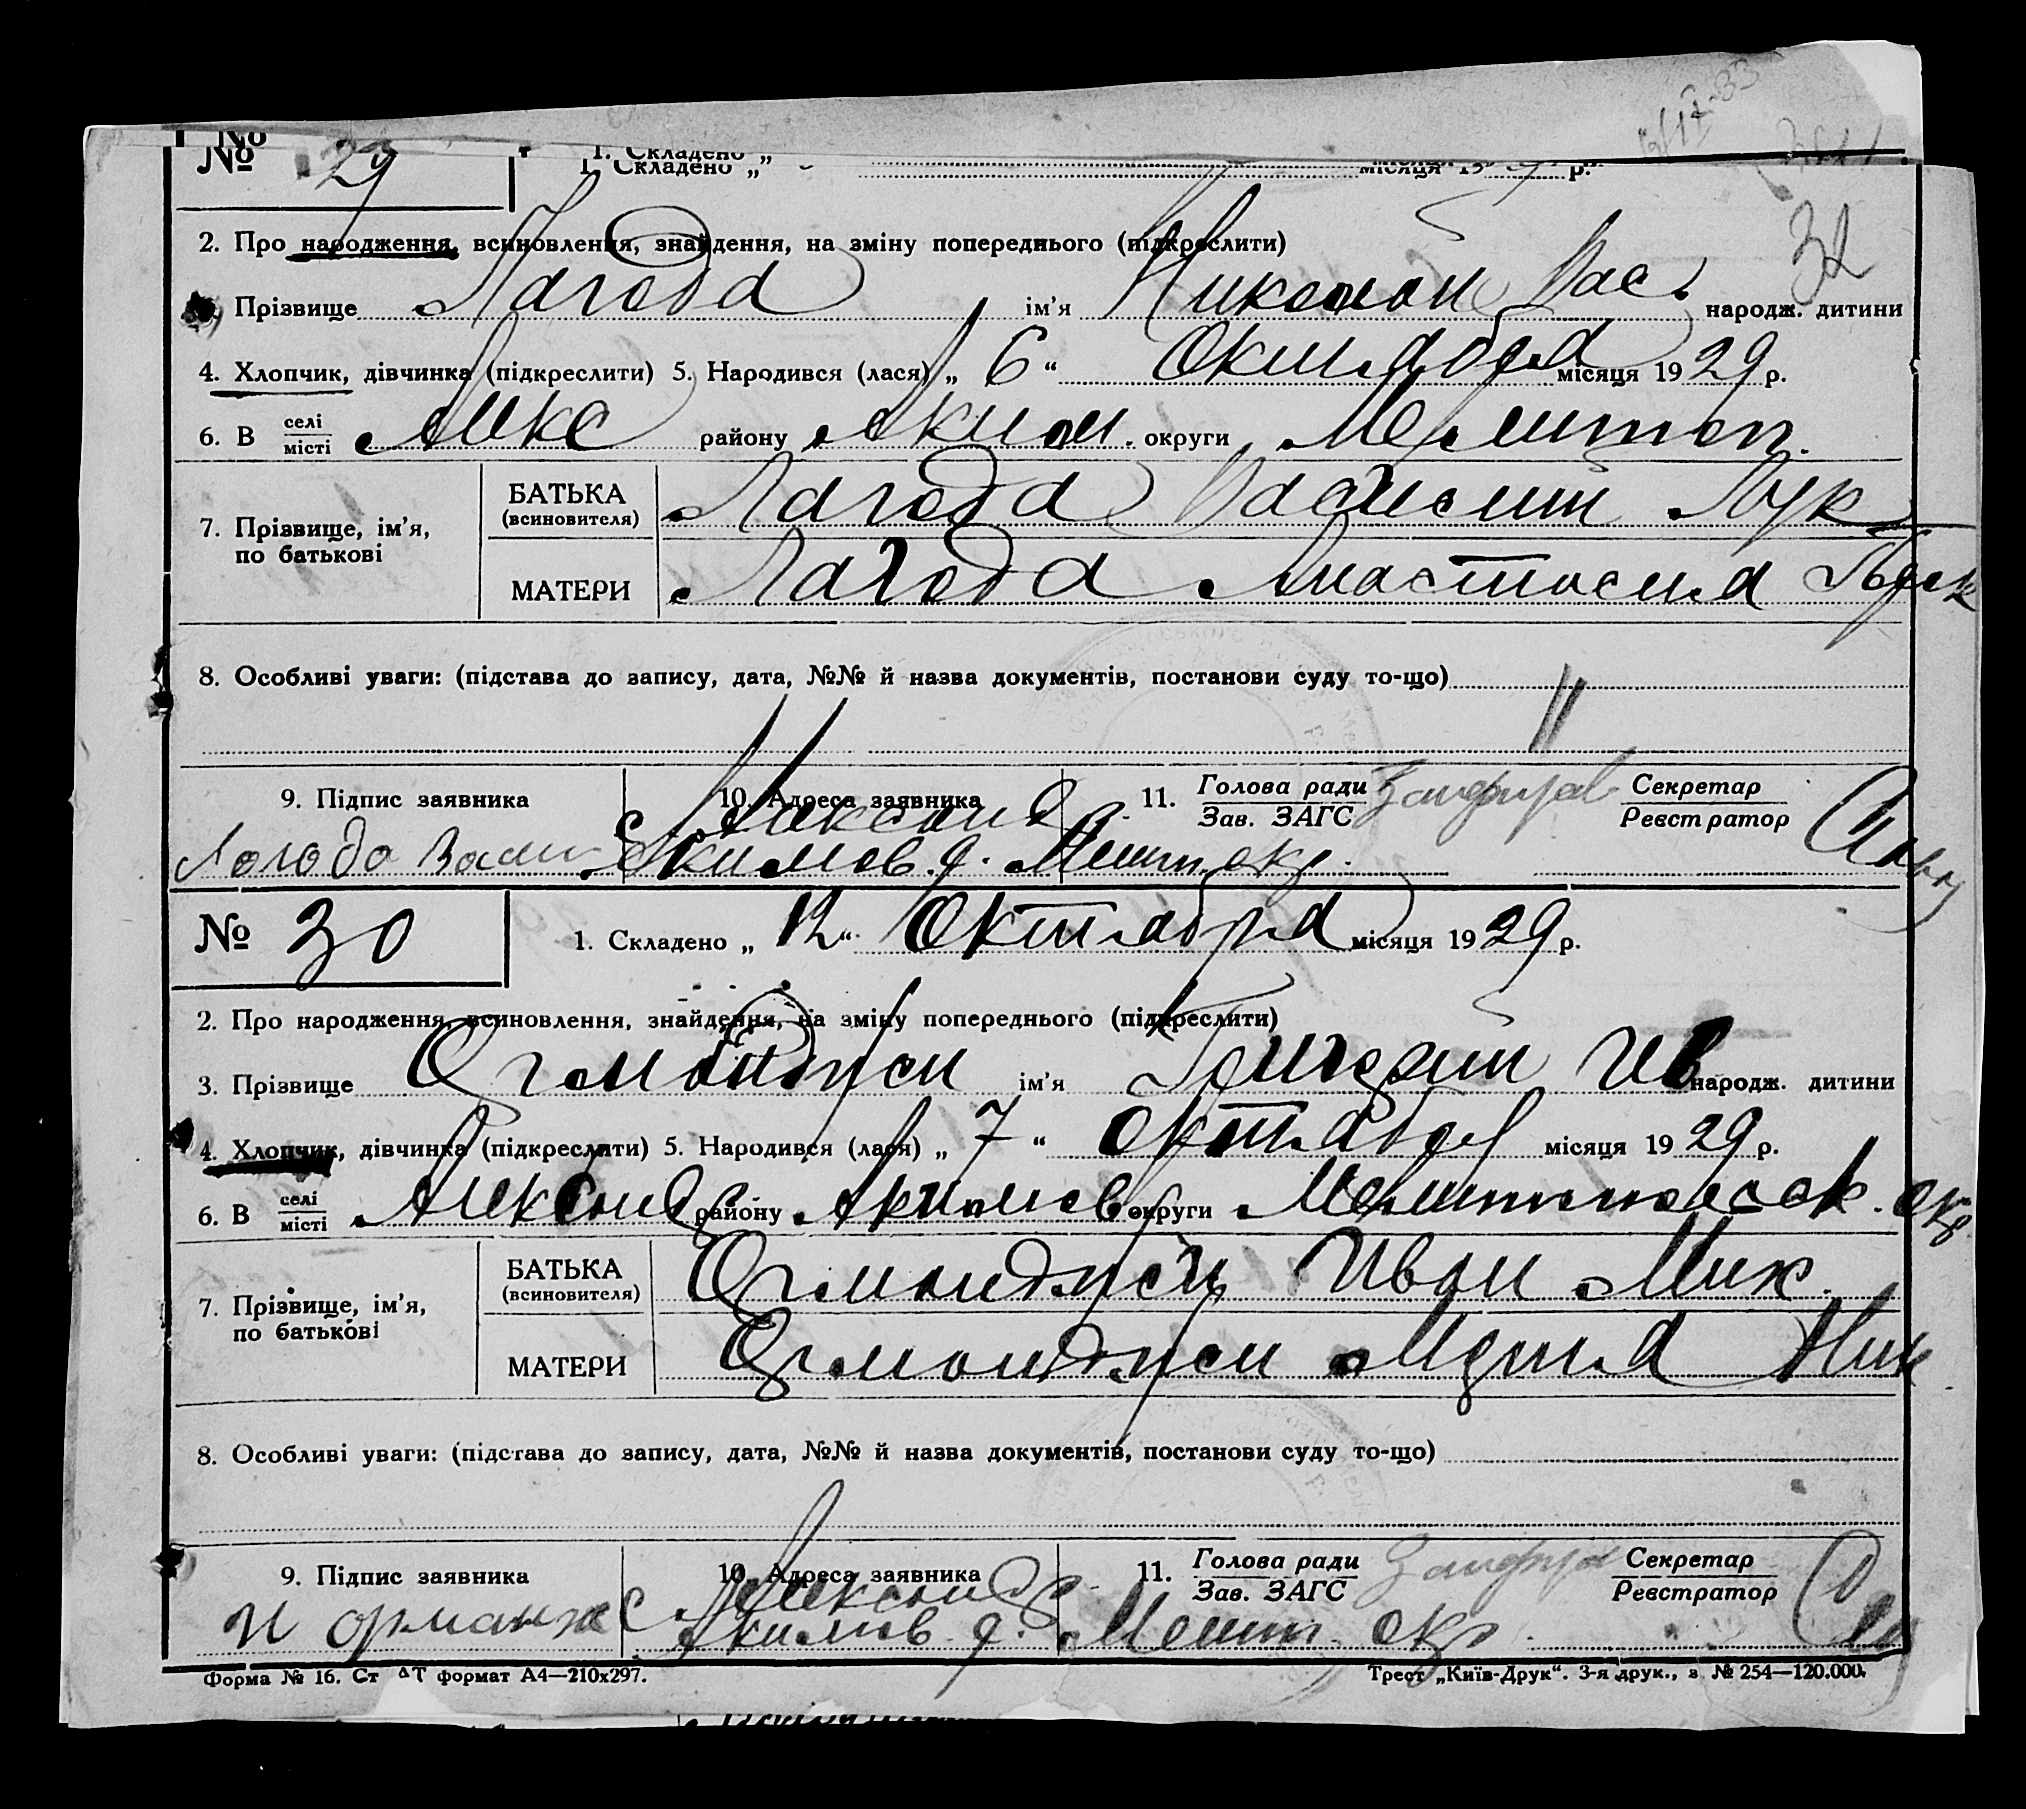 № 29
1. Складено „
місяця 19 р.
32
2. Про народження, всиновлення, знайдення, на зміну попереднього (підкреслити)
Прізвище Лагода ім'я Николай Вас. народж. дитини
4. Хлопчик, дівчинка (підкреслити) 5. Народився (лася) „ 6 “ Октября місяця 1929 р.
6. В селі/місті Алекс району Аким. округи Мелитоп.
7. Прізвище, ім'я, по батькові
БАТЬКА (всиновителя) Лагода Василий Лук
МАТЕРИ Лагода Анастасия
8. Особливі уваги: (підстава до запису, дата, №№ й назва документів, постанови суду то-що)
9. Підпис заявника 10. Адреса заявника 11. Голова ради/Зав. ЗАГС Секретар/Реєстратор
Акимов. р. Мелит. окр.
№ 30 1. Складено „ 12 “ Октября місяця 1929 р.
2. Про народження, всиновлення, знайдення, на зміну попереднього (підкреслити)
3. Прізвище Орманджи ім'я Григорий Ив народж. дитини
4. Хлопчик, дівчинка (підкреслити) 5. Народився (лася) „ 7 “ октября місяця 1929 р.
6. В селі/місті району Акимов округи окр.
7. Прізвище, ім'я, по батькові
БАТЬКА (всиновителя) Орманджи Иван Мих.
МАТЕРИ Орманджи Мария Ник
8. Особливі уваги: (підстава до запису, дата, №№ й назва документів, постанови суду то-що)
9. Підпис заявника 10. Адреса заявника 11. Голова ради/Зав. ЗАГС Секретар/Реєстратор
И Орманж Акимов. р. Мелит. окр.
Форма № 16. Ст ΔТ формат А4—210х297. Трест „Київ-Друк“. 3-я друк., з. № 254—120.000.